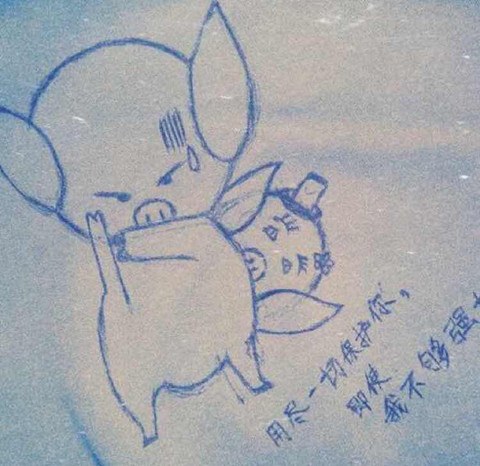 用尽一切保护你，
即使
我不够强